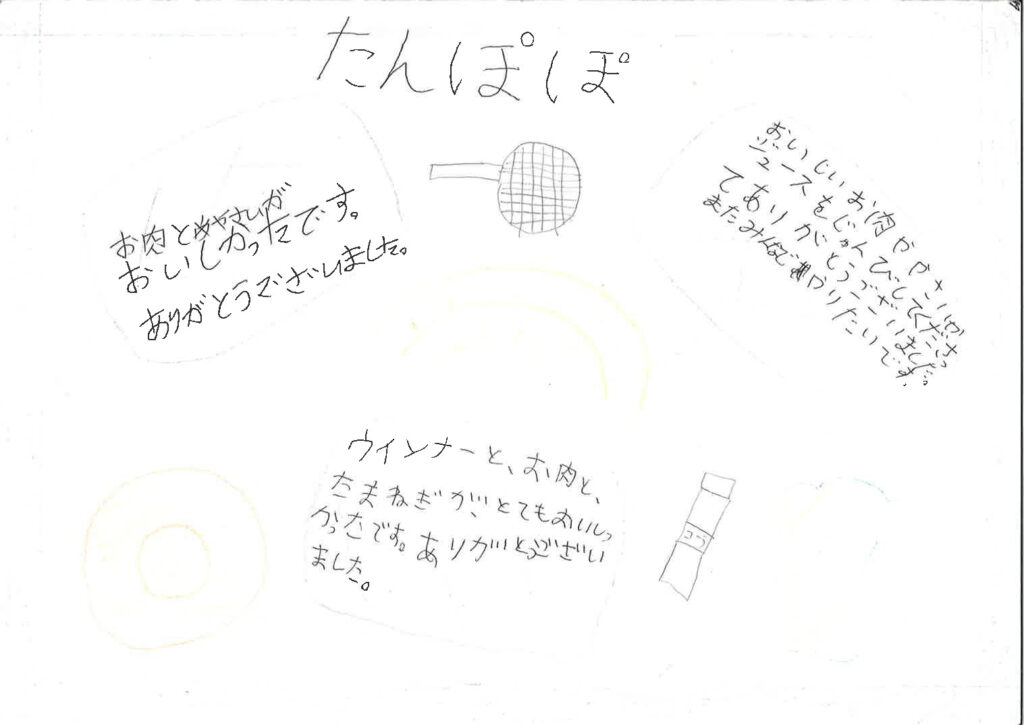 たんぽぽ
お肉とやさいが
おいしかったです。
ありがとうございました。
おいしいお肉ややさいや
ジュースをじゅんびしてくださっ
てありがとうございました。
またみんなでやりたいです。
ウインナーと、お肉と、
たまねぎが、とてもおいしっ
かったです。ありがとうござい
ました。
コーラ